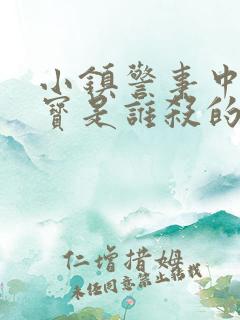 小鎮警事中
寶是誰殺的
仁增措姆
未经同意禁止转载